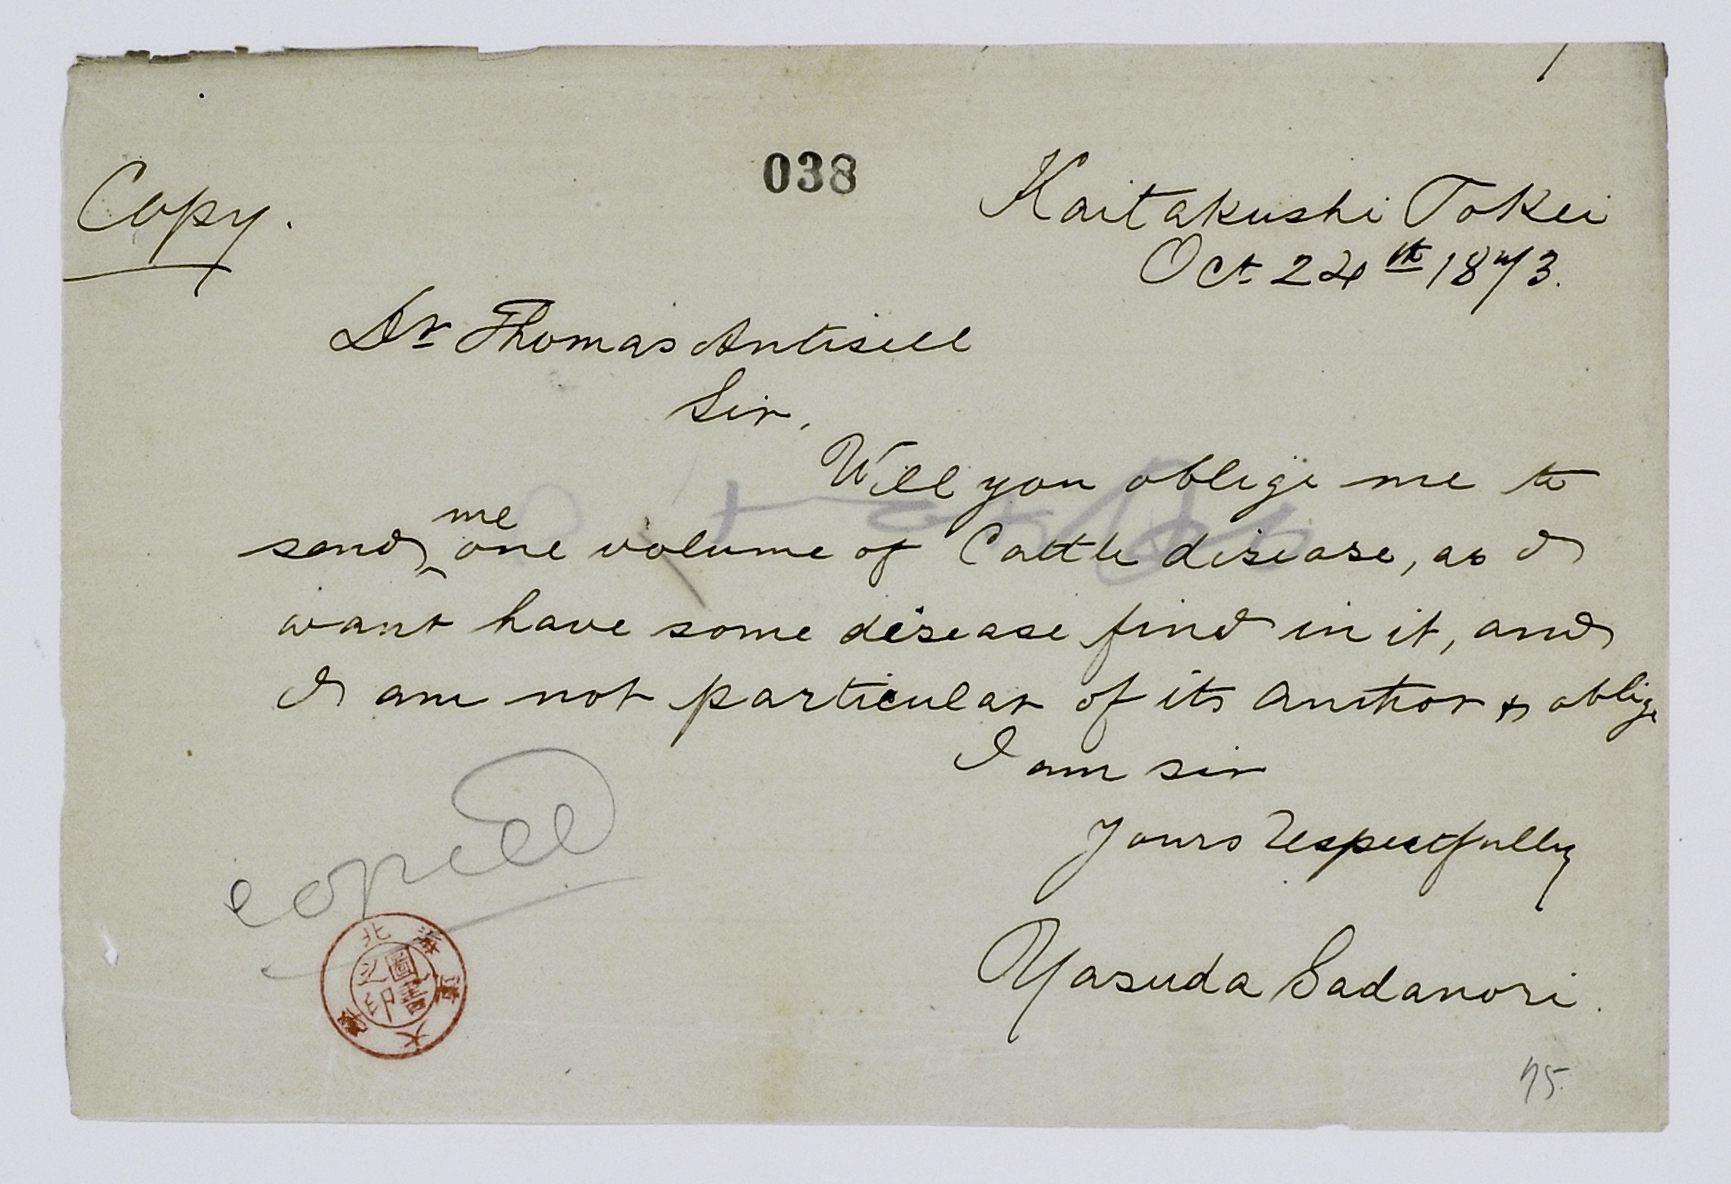 038
Copy.
Kaitakushi Tokei
Oct 24th 1873.
Dr Thomas Antisell
Sir,
Will you oblige me to
send me one volume of Cattle disease, as I
want have some disease find in it, and
I am not particular of its author & oblige
I am sir
Yours respectfully
Yasuda Sadanori.
copied
北海道大學
圖書之印
75.